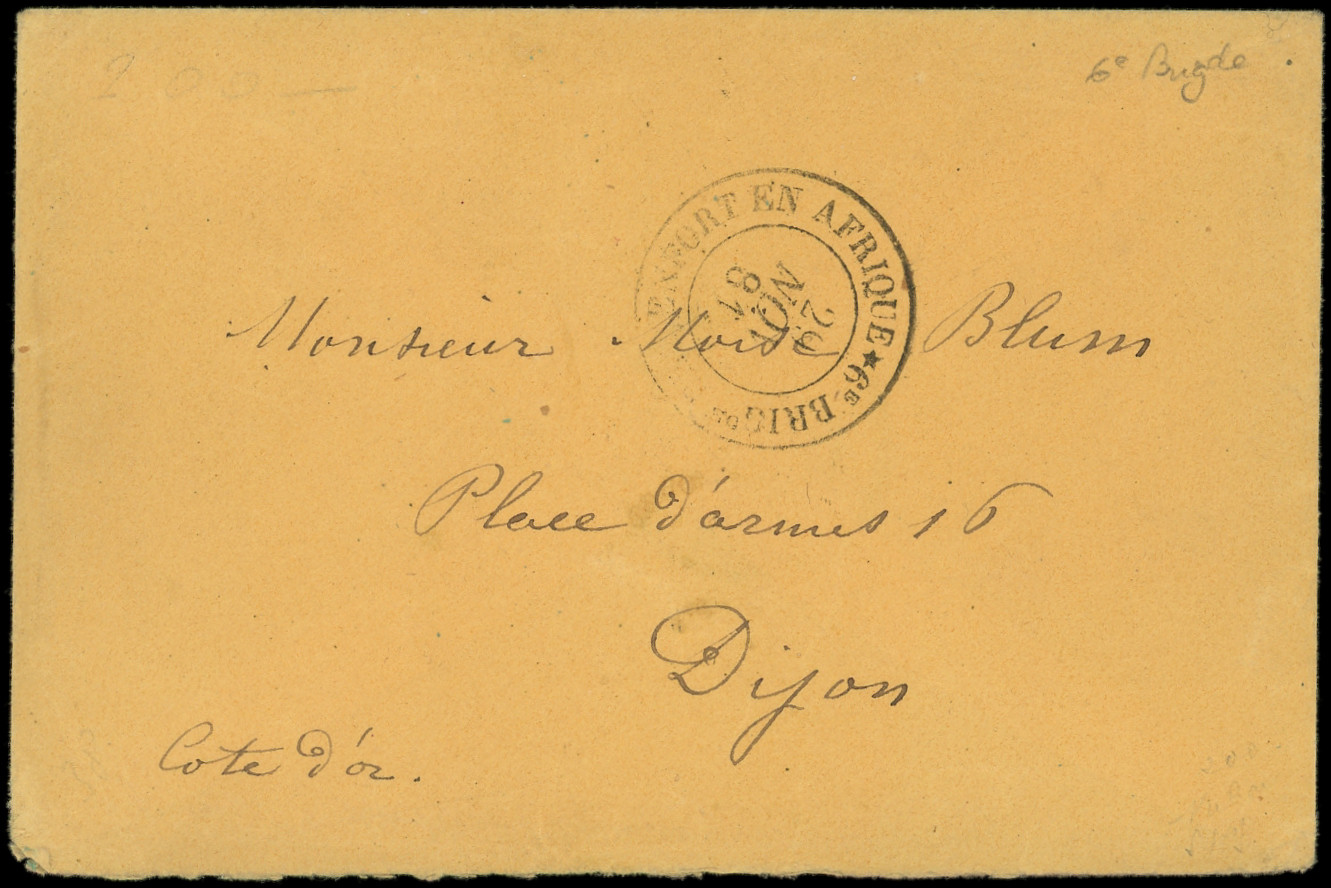 6e Brigde
200 —
RENFORT EN AFRIQUE ★ 6E BRIGDE
26
NOV
81
Monsieur Moïse Blum
Place d'armes 16
Dijon
Cote d'or.